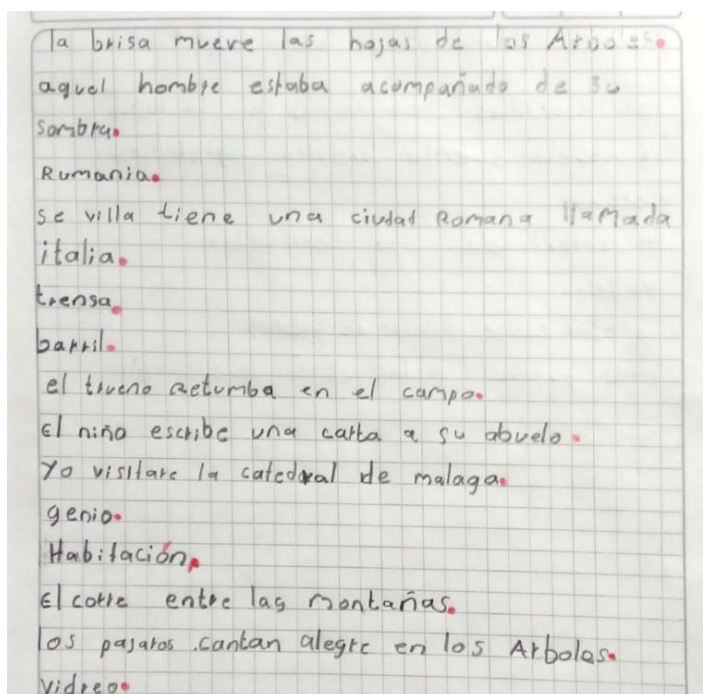 la brisa mueve las hojas de los Arboles.
aquel hombre estaba acompañado de su
sombra.
Rumania.
se villa tiene una ciudad Romana llamada
italia.
trensa.
barril.
el trueno Retumba en el campo.
El niño escribe una carta a su abuelo.
Yo visitare la catedral de malaga.
genio.
Habitación.
El corre entre las montañas.
los pajaros cantan alegre en los Arboles.
vidreo.